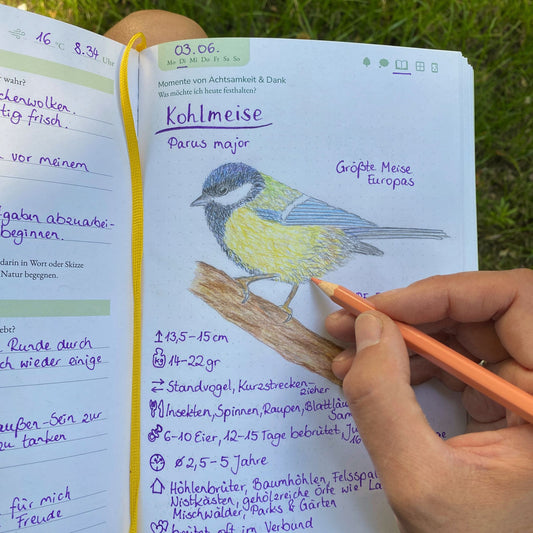 16 °C 8.34 Uhr
wahr?
tig frisch.
vor meinem
gaben abzuarbei-
beginnen.
darin in Wort oder Skizze
Natur begegnen.
ebt?
Runde durch
ch wieder einige
außen-Sein zur
zu tanken
für mich
Freude
03.06.
Mo Di Mi Do Fr Sa So
Momente von Achtsamkeit & Dank
Was möchte ich heute festhalten?
Kohlmeise
Parus major
Größte Meise
Europas
13,5-15cm
kg 14-22gr
Standvogel, Kurzstrecken-
zieher
Insekten, Spinnen, Raupen, Blattläu
Sam
6-10 Eier, 12-15 Tage bebrütet, Ju
16
ø 2,5-5 Jahre
Höhlenbrüter, Baumhöhlen, Felsspa
Nistkästen, gehölzreiche Orte wie La
Mischwälder, Parks & Gärten
brütet oft im Verbund